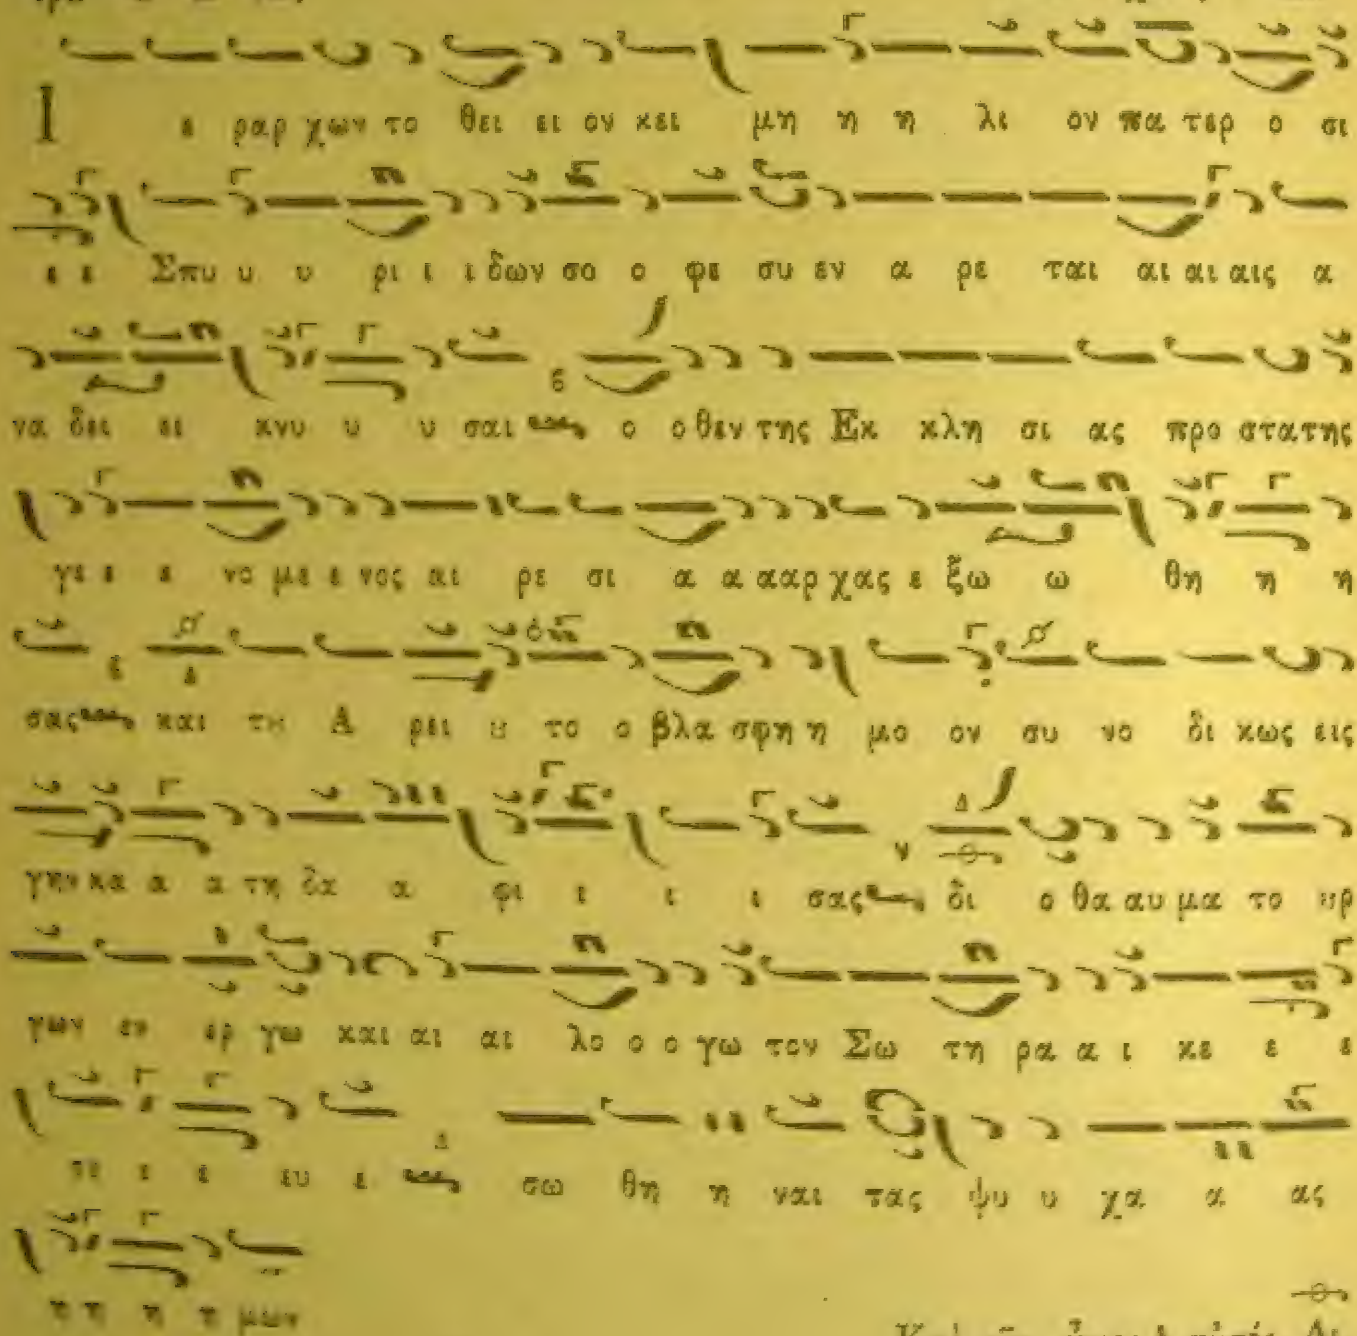 Ι ε ραρ χων το θει ει ον κει μη η η λι ον πα τερ ο σι
ε ε Σπυ υ υ ρι ι ι δων σο ο φε συ εν α ρε ται αι αι αις α
να δει ει κνυ υ υ σαι ο ο θεν της Εκ κλη σι ας προ στατης
γε ε ε νο με ε νος αι ρε σι α α α αρ χας ε ξω ω θη η η
σας και τȣ Α ρει ȣ το ο βλα σφη η μο ον συ νο δι κως εις
γην κα α α τη δα α φι ι ι ι σας δι ο θα αυ μα το ȣρ
γων εν ερ γω και αι αι λο ο ο γω τον Σω τη ρα α ι κε ε ε
τε ε ε ευ ε σω θη η ναι τας ψυ υ χα α ας
η η η μων